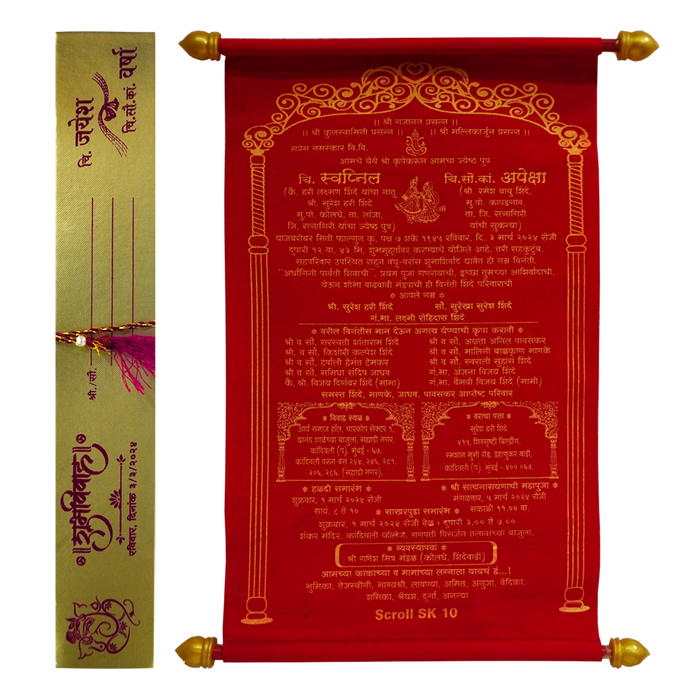 चि. जयेश
चि.सौ.कां. वर्षा
श्री./सौ.
॥शुभविवाह॥
रविवार, दिनांक ३/३/२०२४
।। श्री गजानन प्रसन्न ।।
।। श्री कुलस्वामिनी प्रसन्न ।। ।। श्री मल्लिकार्जुन प्रसन्न ।।
सप्रेम नमस्कार वि.वि.
आमचे येथे श्री कृपेकरून आमचा ज्येष्ठ पुत्र
चि. स्वप्निल
चि.सौ.कां. अपेक्षा
(कै. हरी लक्ष्मण शिंदे यांचा नातू
श्री. सुरेश हरी शिंदे
मु.पो. कोलधे, ता. लांजा,
जि. रत्नागिरी यांचा ज्येष्ठ पुत्र)
(श्री. रमेश बाबू शिंदे,
मु.पो. कापडगाव,
ता. जि. रत्नागिरी
यांची सुकन्या)
याजबरोबर मिती फाल्गुन कृ. पक्ष ७ शके १९४५ रविवार, दि. ३ मार्च २०२४ रोजी
दुपारी १२ वा. ४३ मि. शुभमुहूर्तावर करण्याचे योजिले आहे, तरी सहकुटुंब,
सहपरिवार उपस्थित राहून वधू-वरांस शुभाशिर्वाद द्यावेत ही नम्र विनंती.
"अर्धांगिनी पार्वती शिवाची", प्रथम पुजा गणरायाची, इच्छा तुमच्या आशिर्वादाची,
येऊन शोभा वाढवावी मंडपाची ही विनंती शिंदे परिवाराची
* आपले नम्र *
श्री. सुरेश हरी शिंदे सौ. सुरेखा सुरेश शिंदे
गं.भा. लक्ष्मी रोहिदास शिंदे
* वरील विनंतीस मान देऊन अगत्य येण्याची कृपा करावी *
श्री व सौ. सरस्वती शांताराम शिंदे
श्री व सौ. किशोरी कल्पेश शिंदे
श्री व सौ. हर्षाली हेमंत टेमकर
श्री व सौ. समिधा संदिप जाधव
कै. श्री. विजय दिगंबर शिंदे (मामा)
श्री व सौ. अक्षता अनिल पावसकर
श्री व सौ. मालिनी बाळकृष्ण माणके
श्री व सौ. स्वराली सुहास शिंदे
गं.भा. अंजना विजय शिंदे
गं.भा. वैभवी विजय शिंदे (मामी)
समस्त शिंदे, माणके, जाधव, पावसकर आप्तेष्ट परिवार
* विवाह स्थळ *
आर्य समाज हॉल, चारकोप सेक्टर १,
दयानंद शाळेच्या बाजूला, सह्याद्री नगर,
कांदिवली (प.) मुंबई - ६७.
कांदिवली वरून बस २४४, २४५, २८१,
२०६, २८६. (सह्याद्री नगर).
* वराचा पत्ता *
सुरेश हरी शिंदे
४१५, शिवसृष्टी बिल्डींग,
स्मशान भूमी रोड, डहाणूकर वाडी,
कांदिवली (प.) मुंबई - ४०० ०६७.
* हळदी समारंभ *
शुक्रवार, १ मार्च २०२४ रोजी
सायं. ८ ते १०
* श्री सत्यनारायणाची महापुजा *
मंगळवार, ५ मार्च २०२४ रोजी
सकाळी ११.०० वा.
* साखरपुडा समारंभ *
शुक्रवार, १ मार्च २०२४ रोजी वेळ : दुपारी ३.०० ते ७.००
शंकर मंदिर, कांदिवली व्हीलेज, गणपती विसर्जन तलावाच्या बाजूला.
* व्यवस्थापक *
श्री गणेश मित्र मंडळ (कोलधे, शिंदेवाडी)
आमच्या काकाच्या व मामाच्या लग्नाला यायचं हं...!
भुमिका, तेजस्वीनी, भाग्यश्री, लावण्या, अमित, अनुजा, वेदिका,
शमिका, श्रेयश, दुर्गा, अनन्या
Scroll SK 10